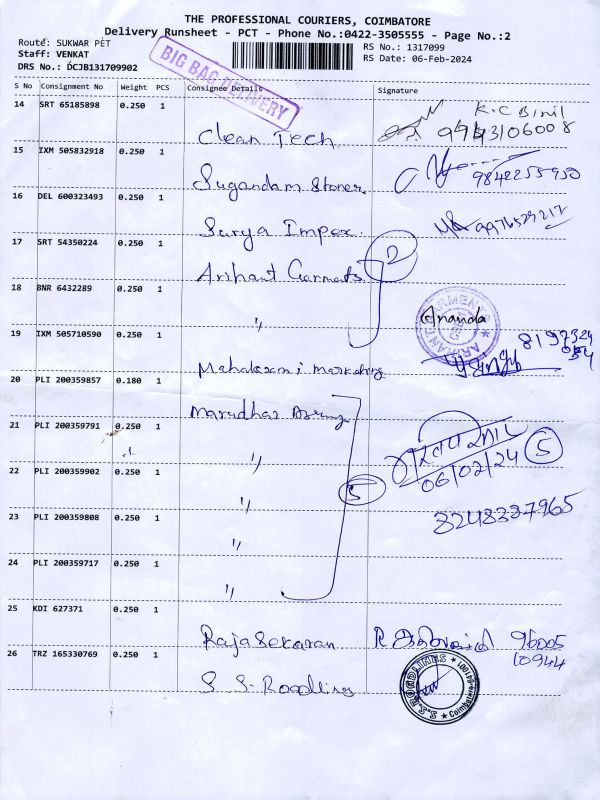 THE PROFESSIONAL COURIERS, COIMBATORE
Delivery Runsheet - PCT - Phone No.:0422-3505555 - Page No.:2
Route: SUKWAR PET
RS No.: 1317099
Staff: VENKAT
RS Date: 06-Feb-2024
DRS No.: DCJB131709902
BIG BAG DELIVERY
S No Consignment No Weight PCS Consignee Details Signature
14 SRT 65185898 0.250 1
Clean Tech K.C Binil
15 IXM 505832918 0.250 1
Sugandam Stores 9842255950
16 DEL 600323493 0.250 1
Surya Impex. 9976529217
17 SRT 54350224 0.250 1
Arihant Garments 2
18 BNR 6432289 0.250 1
" Ananda
19 IXM 505710590 0.250 1
Mahalaxmi Marketing
20 PLI 200359857 0.180 1
Marudhar
21 PLI 200359791 0.250 1
"
06/02/24 5
22 PLI 200359902 0.250 1
" 5
23 PLI 200359808 0.250 1
"
24 PLI 200359717 0.250 1
"
25 KDI 627371 0.250 1
Rajasekaran 96005
10944
26 TRZ 165330769 0.250 1
S. S. Roadlines
S.S. ROADLINES